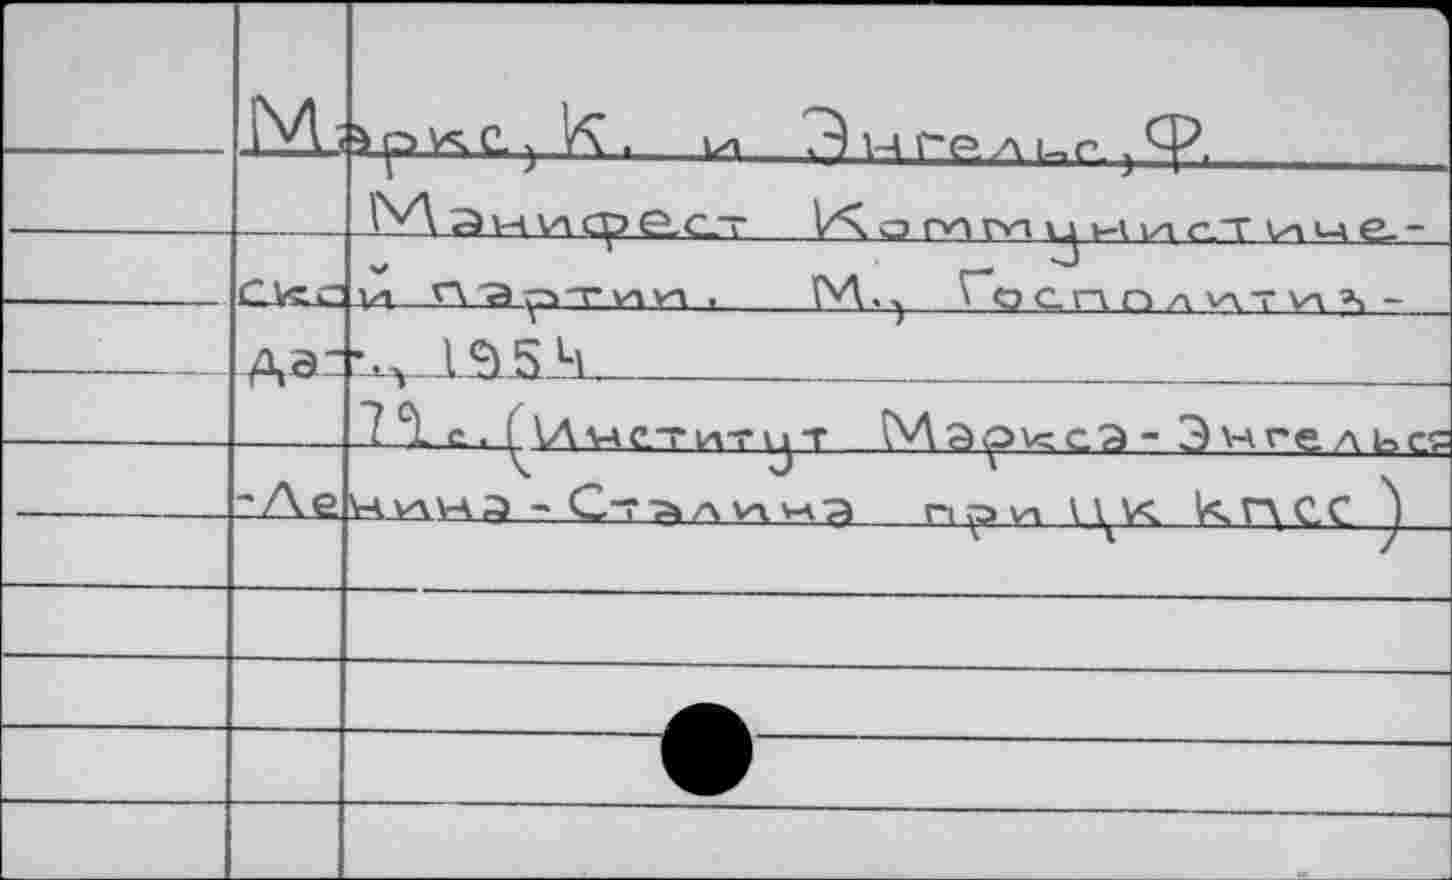 Маркс, К. и Энгельс, Ф.
Манифест Коммунистиче-
ской партии. М., Госполитиз-
дат., 1954.
79 с. (Институт Маркса - Энгельса
- Ленина - Сталина при ЦК КПСС)